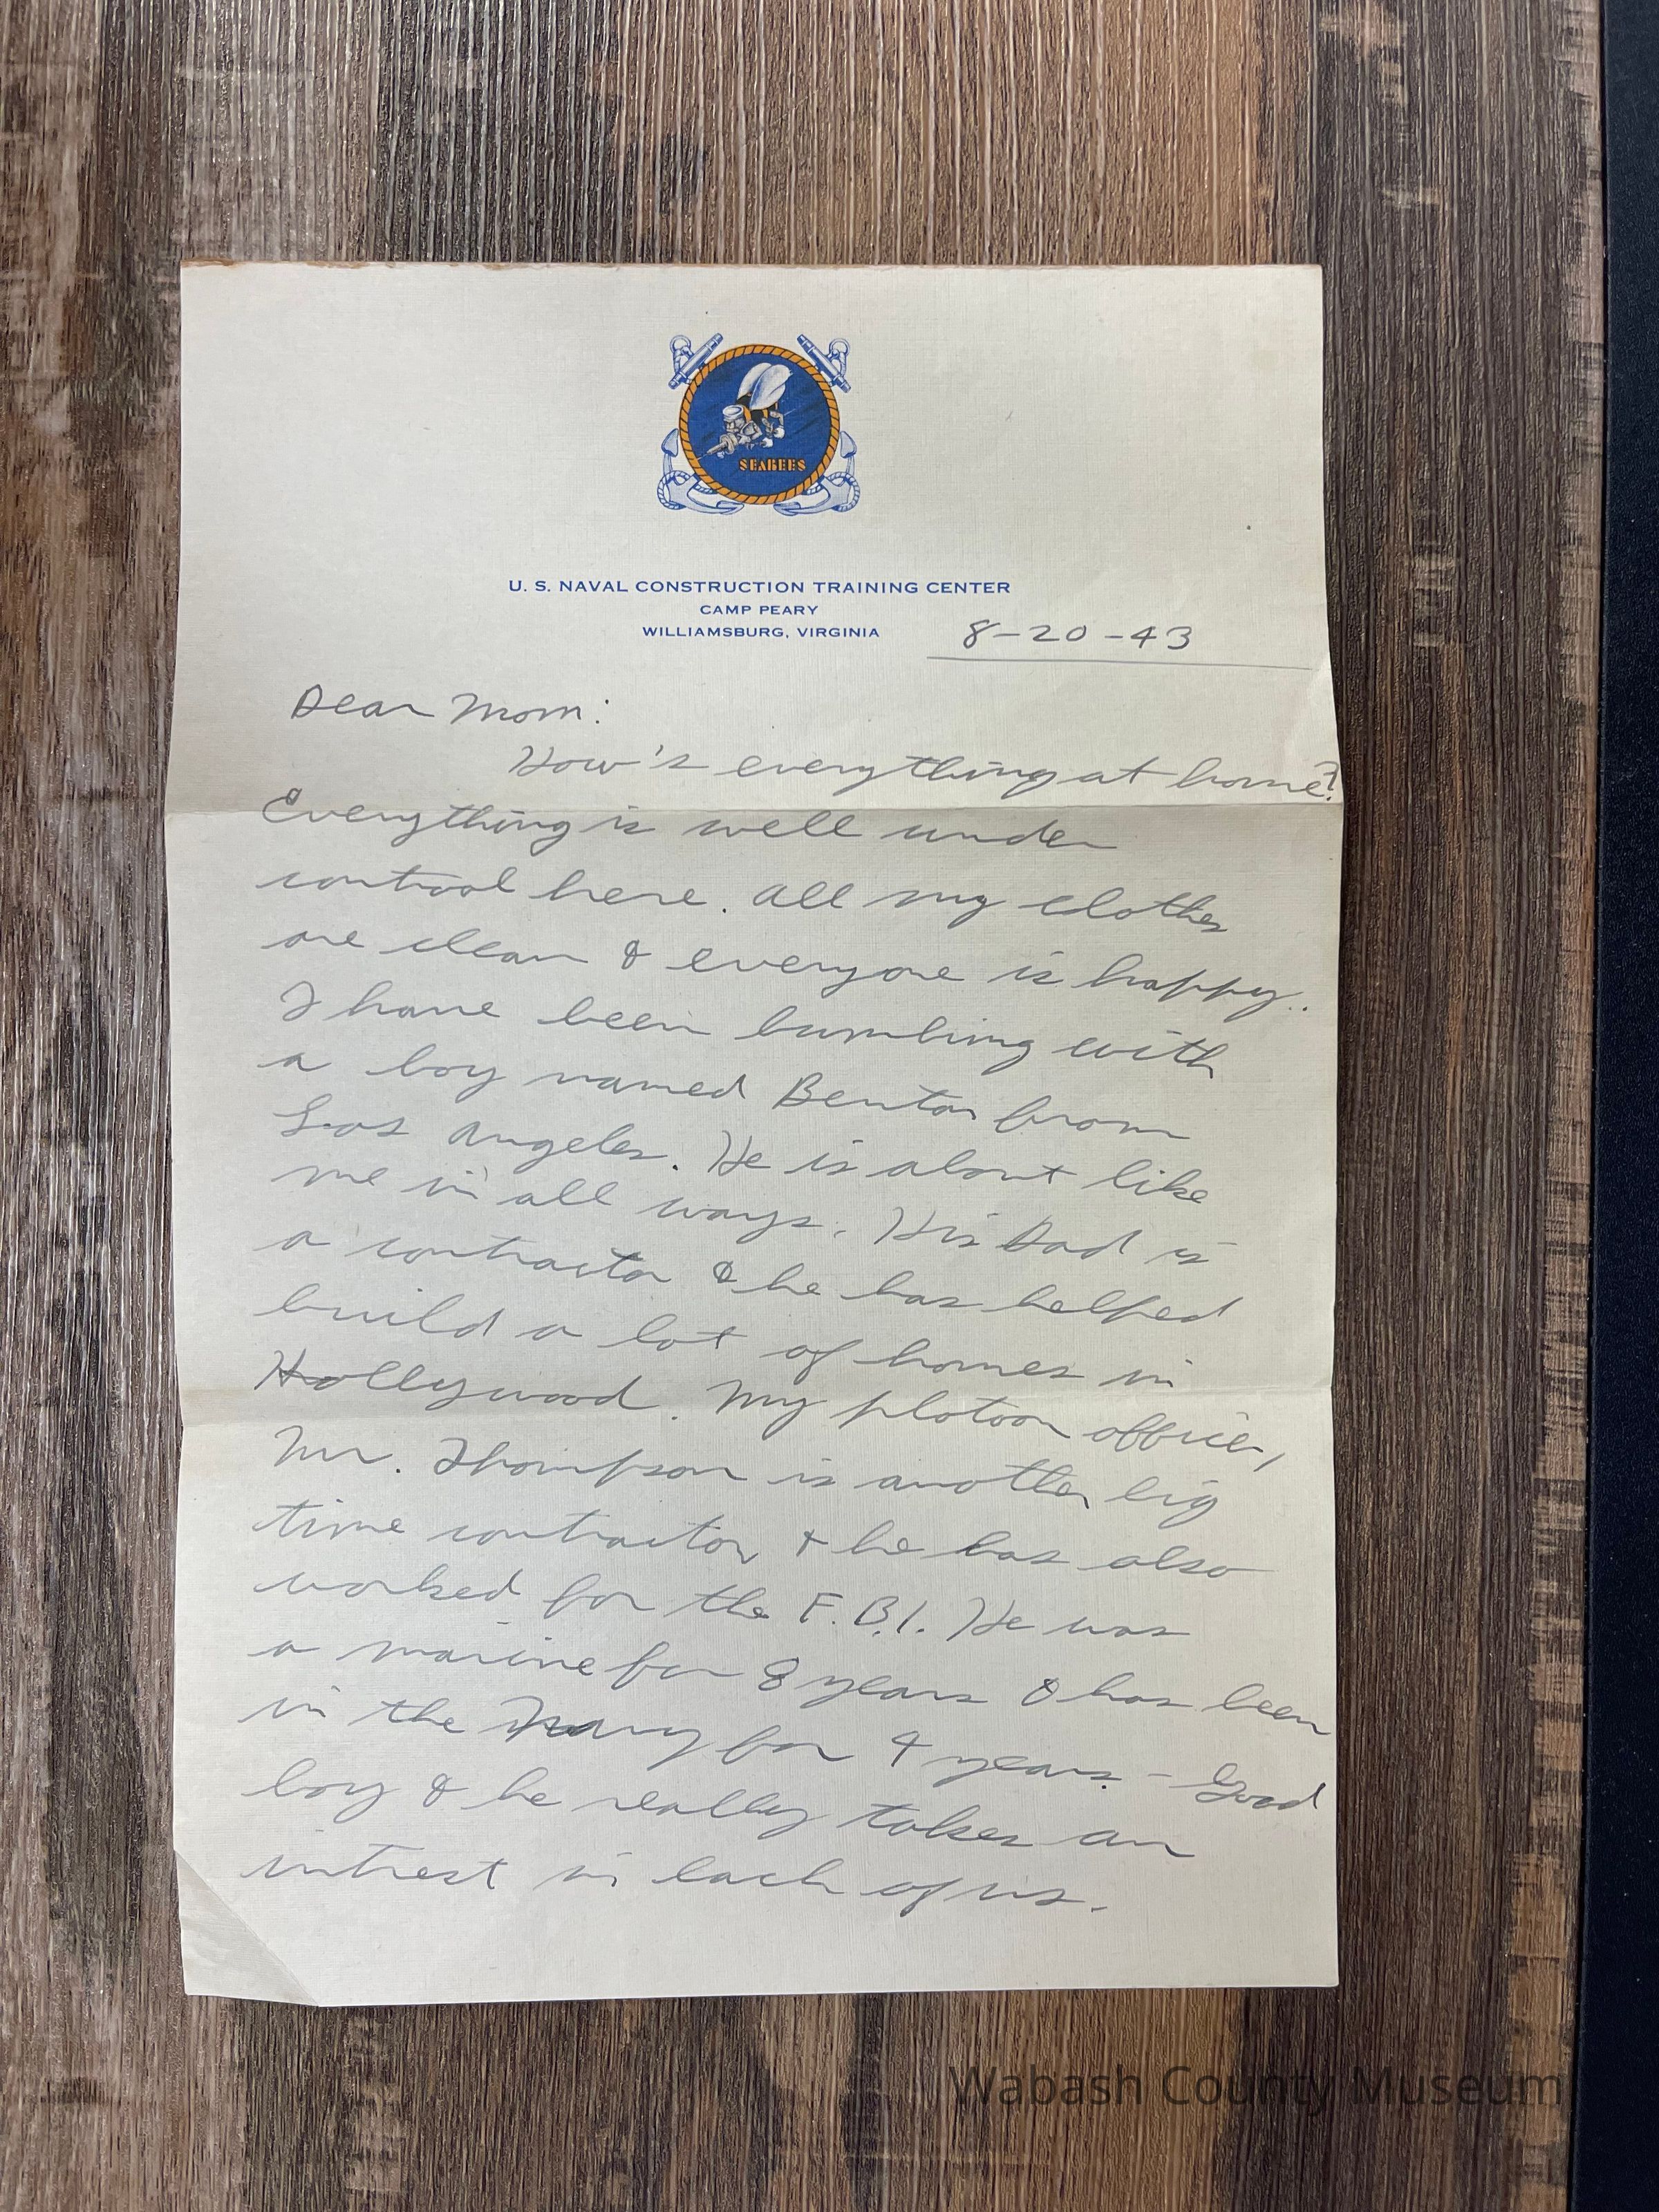 SEABEES
U. S. NAVAL CONSTRUCTION TRAINING CENTER
CAMP PEARY
WILLIAMSBURG, VIRGINIA
8-20-43
Dear Mom:
How's everything at home?
Everything is well under
control here. All my clothes
are clean & everyone is happy.
I have been bumbing with
a boy named Benton from
Los Angeles. He is about like
me in all ways. His Dad is
a contractor & he has helped
build a lot of homes in
Hollywood. My platoon officer,
Mr. Thompson is another big
time contractor, & he has also
worked for the F.B.I. He was
a marine for 8 years & has been
in the Navy for 4 years. - Good
boy & he really takes an
intrest in each of us.
Wabash County Museum